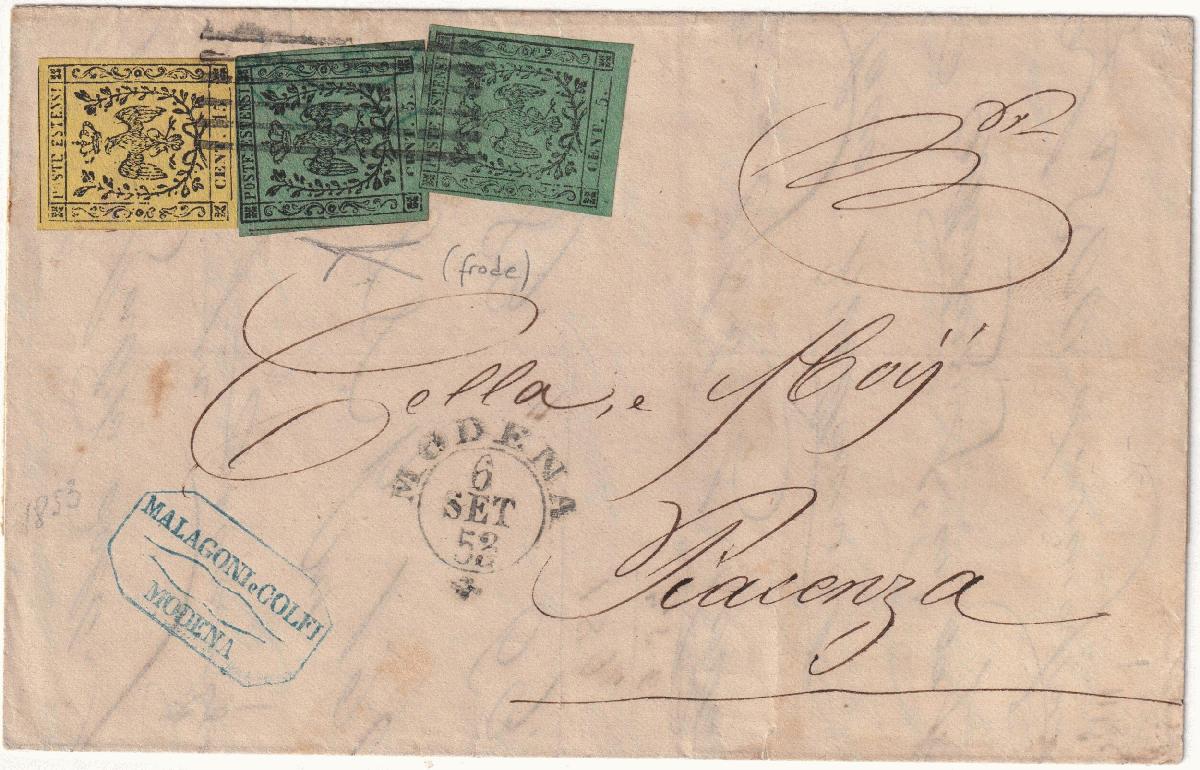 POSTE ESTENSI
CENT. 15.
POSTE ESTENSI
CENT. 5.
POSTE ESTENSI
CENT. 5.
(frode)
Cella, e Moÿ
MODENA
6
SET
52
Piacenza
1853
MALAGONI e COLFI
MODENA